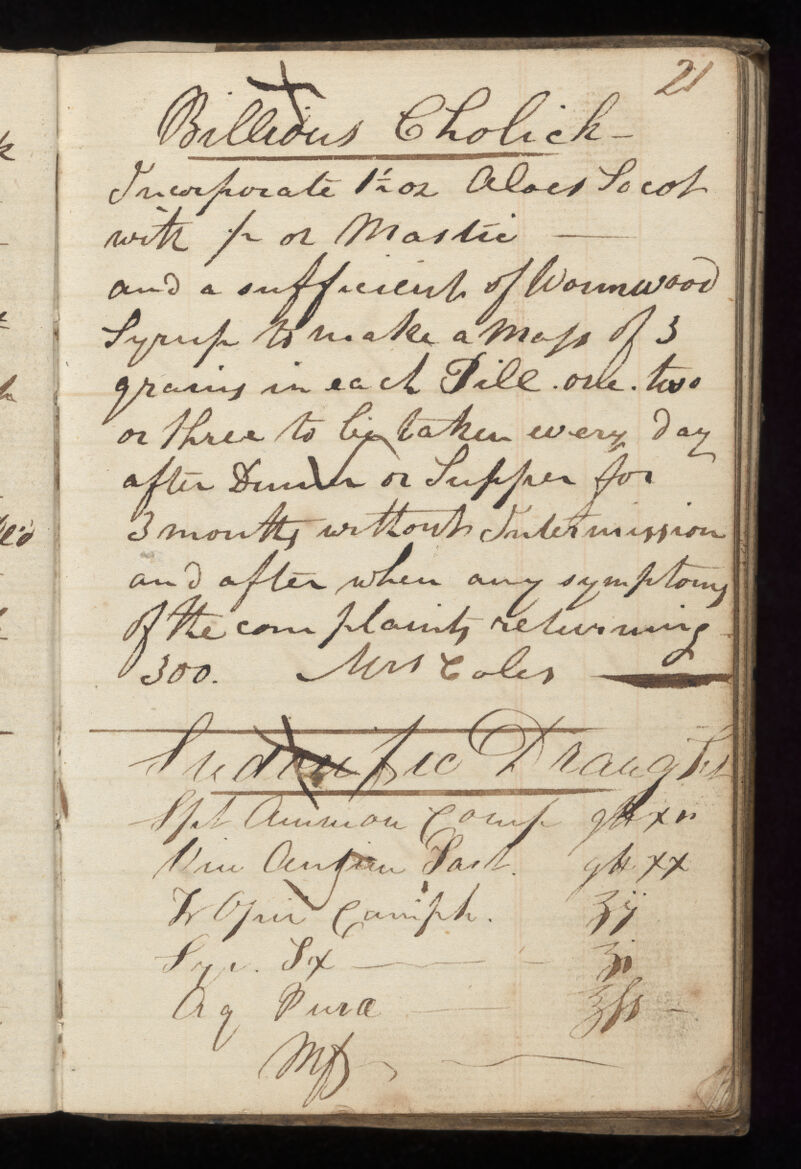 21
Billious Cholick
Incorporate 1½ oz Aloes Socot
with ½ oz Mastic
and a sufficient of Wormwood
Syrup to make a Mass of 3
grains in each Pill. one. two
or three to be taken every day
after Dinner or Supper for
3 months without Intermission
and after when any symptoms
of the complaints returning
300. Mrs Coles
Sudorific Draught
Spt Ammon Comp gtt
Vin Antim Tart. gtt xx
Tr Opii Camph. ʒij
Syr. Sx ʒi
Aq Puræ